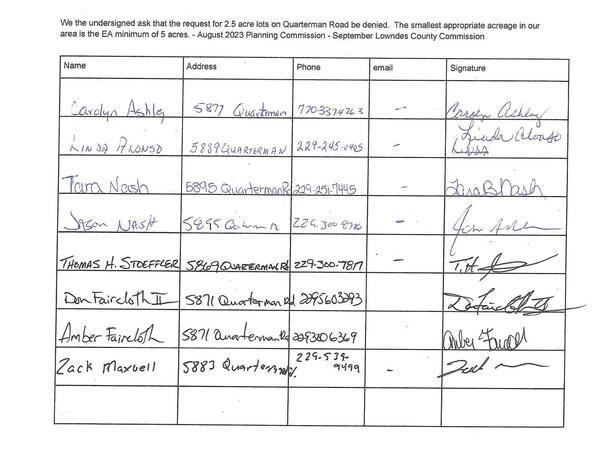 We the undersigned ask that the request for 2.5 acre lots on Quarterman Road be denied. The smallest appropriate acreage in our
area is the EA minimum of 5 acres. - August 2023 Planning Commission - September Lowndes County Commission
Name Address Phone email Signature
Carolyn Ashley 5877 Quarterman 7703374263 – Carolyn Ashley
LINDA ALONSO 5889 QUARTERMAN 229-245-0405 – Linda Alonso
Tara Nash 5895 Quarterman Rd 229-251-7445 – Tara B Nash
JASON NASH 5895 229-300-8786 –
THOMAS H. STOEFFLER 5869 QUARTERMAN Rd 229-300-7817 – T.H.
Don Faircloth II 5871 Quarterman Rd 2295603293 Don Faircloth II
Amber Faircloth 5871 Quarterman Rd 2293006369 Amber Faircloth
Zack Maxwell 5883 Quarterman Rd. 229-539-9499 –